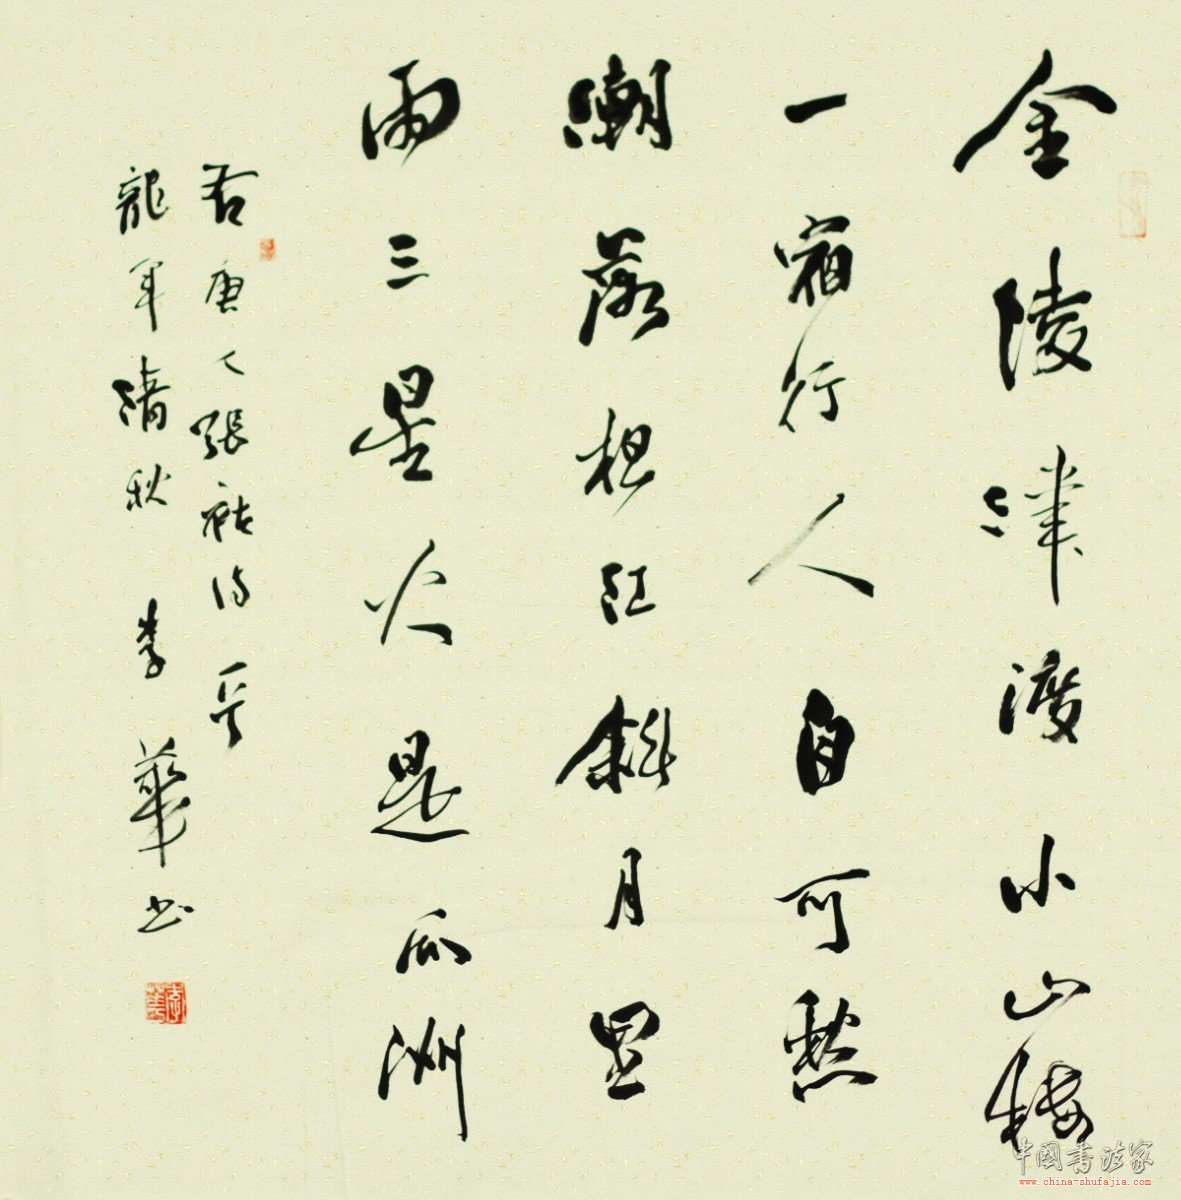 金陵津渡小山樓
一宿行人自可愁
潮落江斜月里
兩三星火是瓜洲
右唐人張祜詩一首
龍年清秋 李華书
李華
中國書法家
www.china-shufajia.com